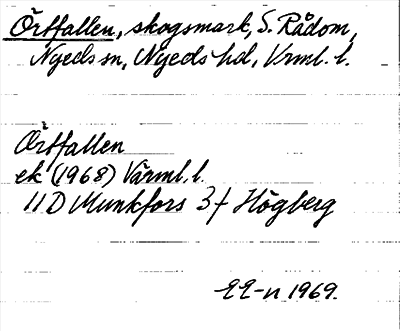 Örtfallen, skogsmark, S. Rådom,
Nyeds sn, Nyeds hd, Vrml. l.
Örtfallen
ek (1968) Värml. l.
11D Munkfors 3f Högberg
EE-n 1969.